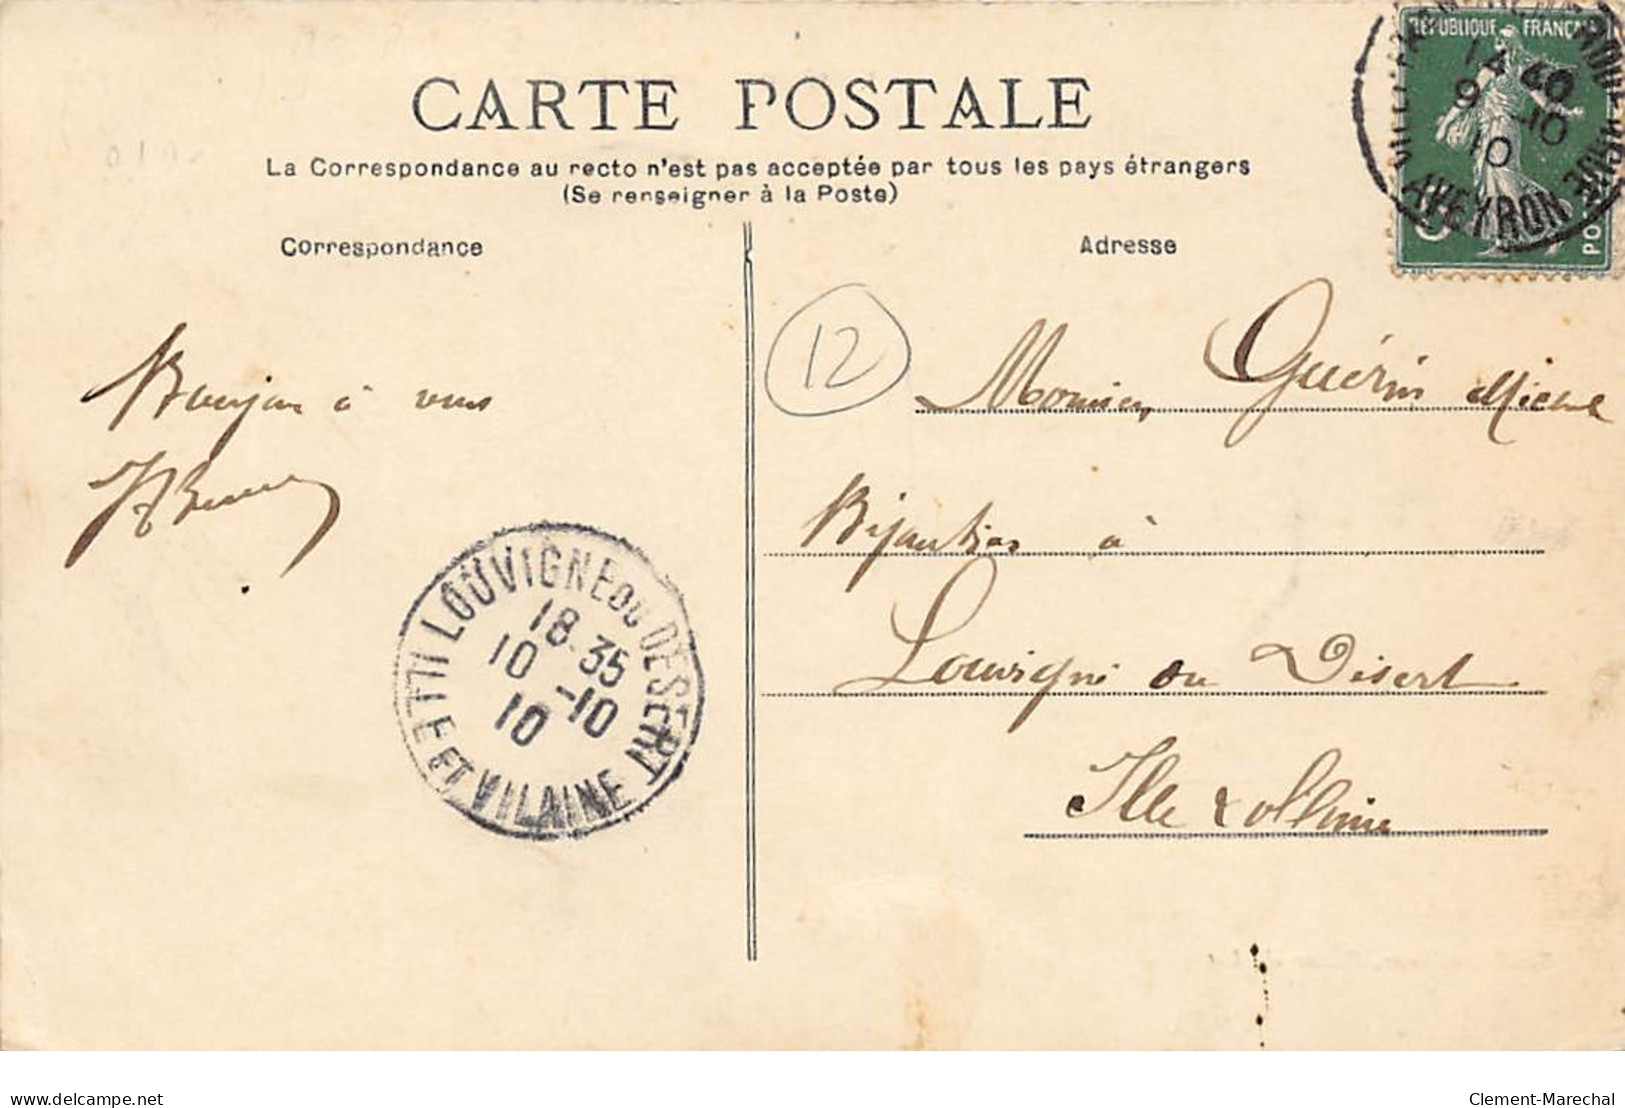 CARTE POSTALE
La Correspondance au recto n'est pas acceptée par tous les pays étrangers
(Se renseigner à la Poste)
Correspondance
Adresse
RÉPUBLIQUE FRANÇAISE
9 -10
10
AVEYRON
12
Bonjour à vous
Monsieur Guérin Michel
Bijoutier à
Louvigné du Désert
Ille & Vilaine
LOUVIGNE DU DESERT
18-35
10 -10
10
ILLE ET VILAINE
delcampe.net
Clement-Marechal